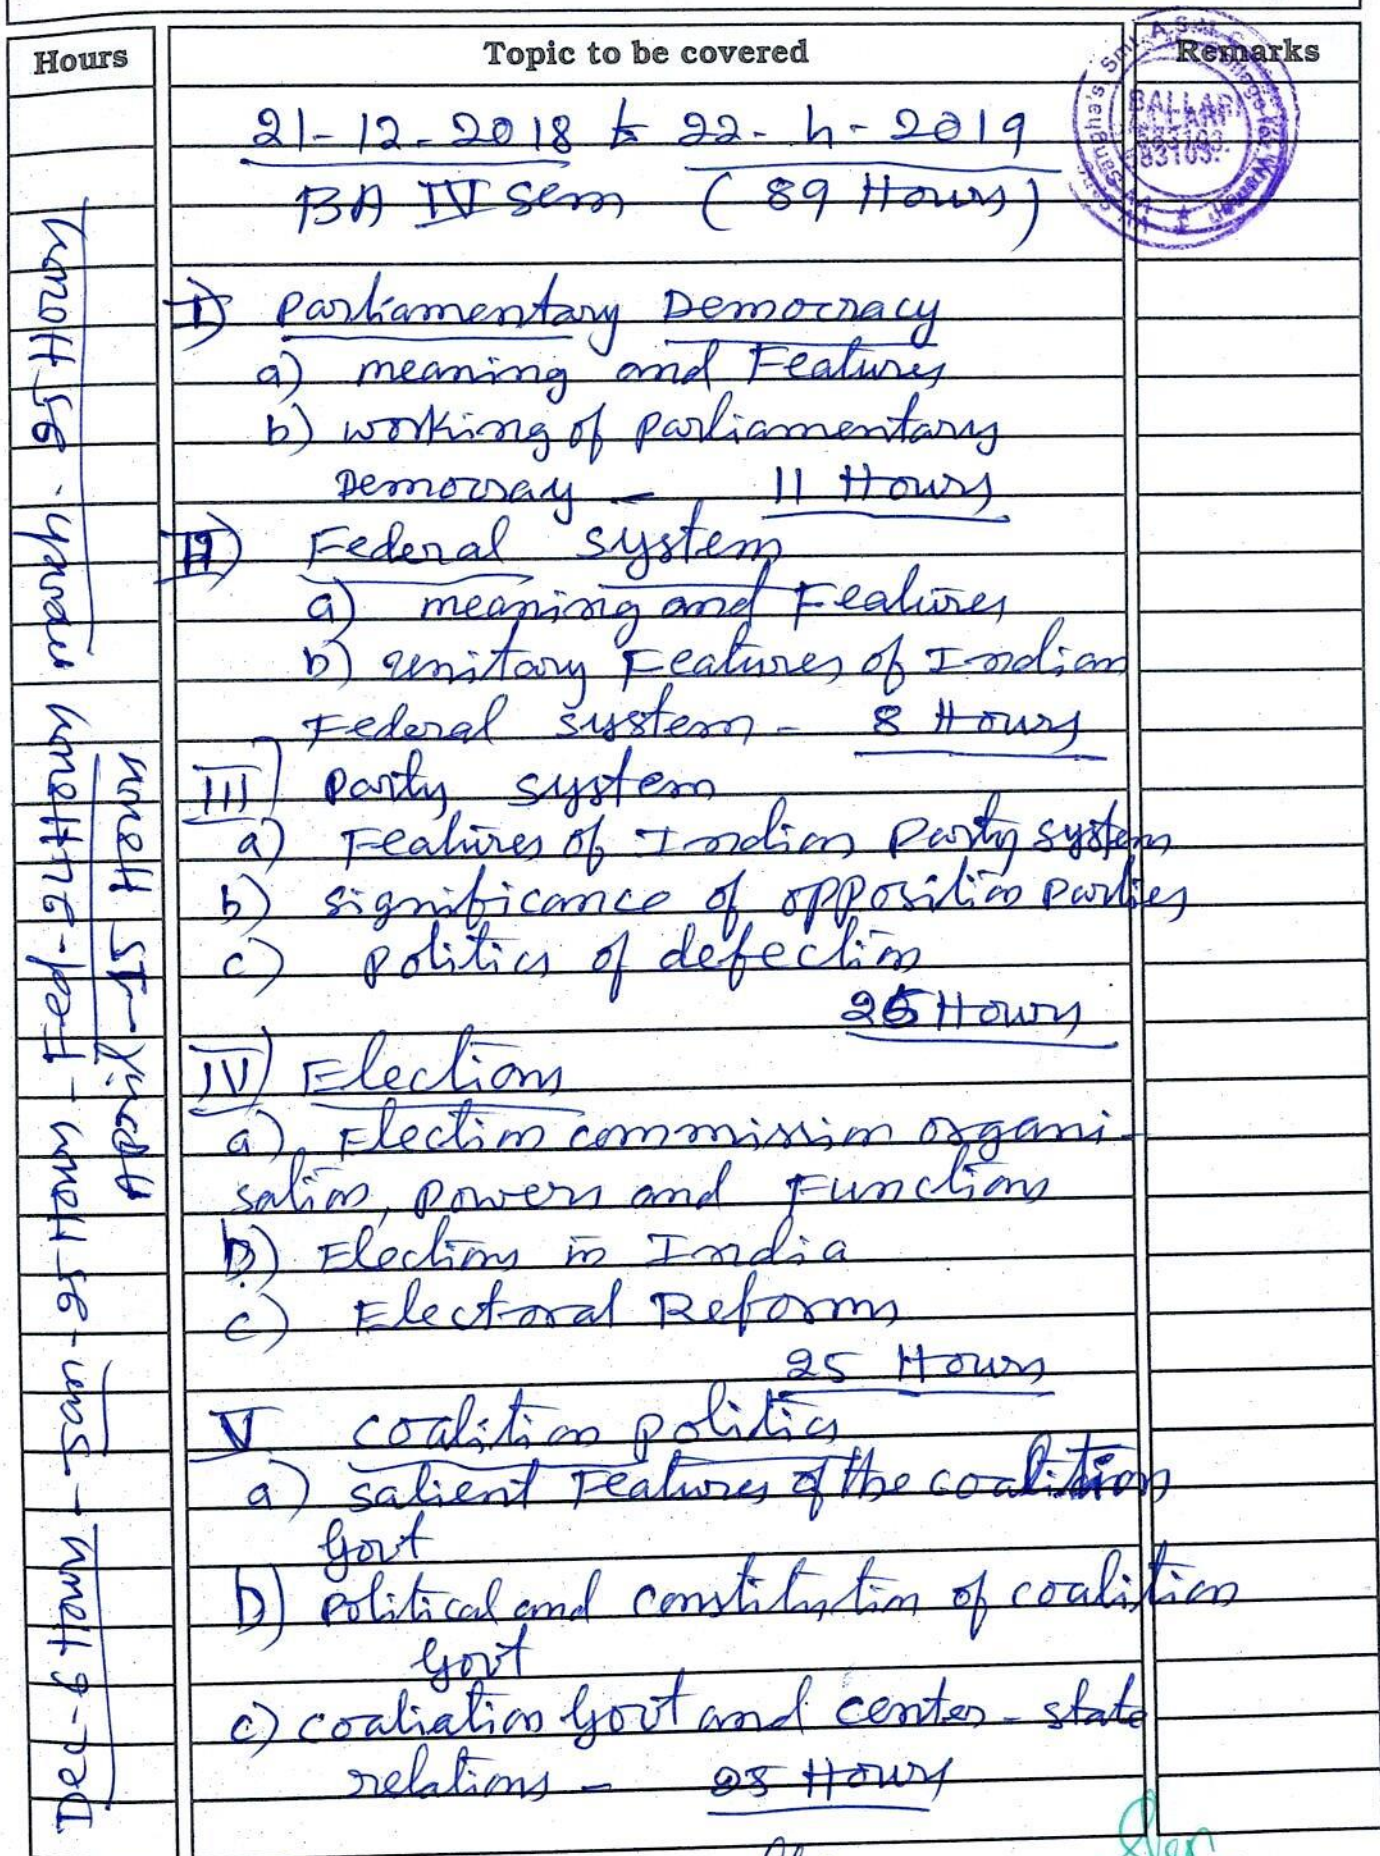 Hours
Topic to be covered
Remarks
21-12-2018 to 22-4-2019
BA IV Sem (89 Hours)
I) Parliamentary Democracy
a) meaning and Features
b) working of parliamentary
Democray - 11 Hours
II) Federal system
a) meaning and Features
b) unitary Features of Indian
Federal system - 8 Hours
III) Party system
a) Features of Indian Party system
b) significance of opposition parties
c) politics of defection
Hours
IV) Elections
a) Election commission organi-
sation, powers and Functions
b) Elections in India
c) Electoral Reforms
25 Hours
V coalition politics
a) salient Features of the coalition
Govt
b) political and constitution of coalition
Govt
c) coaliation Govt and center - state
relations - Hours
Dec - 6 Hours - Jan - 25 Hours - Fed - 24 Hours march - 25 Hours
April - 15 Hours
BALLARI